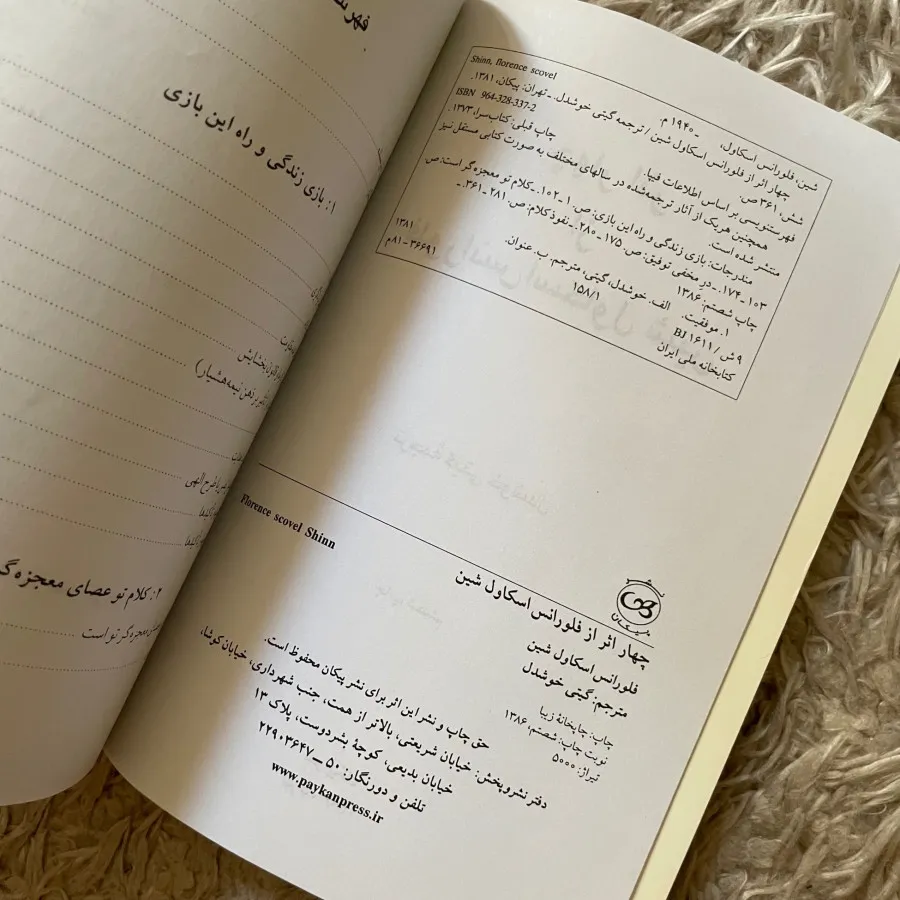 Shinn, florence scovel
شین، فلورانس اسکاول، ـ ۱۹۴۰ م.
چهار اثر از فلورانس اسکاول شین / ترجمه گیتی خوشدل. ـ تهران: پیکان، ۱۳۸۱.
شش، ۳۶۱ ص.
ISBN 964-328-337-2
فهرستنویسی بر اساس اطلاعات فیپا.
چاپ قبلی: کتاب‌سرا، ۱۳۷۳.
همچنین هریک از آثار ترجمه‌شده در سالهای مختلف به صورت کتابی مستقل نیز
منتشر شده است.
مندرجات: بازی زندگی و راه این بازی: ص. ۱ـ۱۰۲. ـ کلام تو معجزه‌گر است: ص.
۱۰۳ـ۱۷۴. ـ در مخفی توفیق: ص. ۱۷۵ـ۲۸۰. ـ نفوذ کلام: ص. ۲۸۱ـ۳۶۱. ـ
چاپ ششم: ۱۳۸۶
۱. موفقیت. الف. خوشدل، گیتی، مترجم. ب. عنوان.
۱۳۸۱
۹ ش / BJ ۱۶۱۱
۱۵۸/۱
کتابخانه ملی ایران
۳۶۶۹۱ ـ ۸۱م
Florence scovel Shinn
پیکان
چهار اثر از فلورانس اسکاول شین
فلورانس اسکاول شین
مترجم: گیتی خوشدل
چاپ: چاپخانهٔ زیبا
نوبت چاپ: ششم، ۱۳۸۶
تیراژ: ۵۰۰۰
حق چاپ و نشر این اثر برای نشر پیکان محفوظ است.
دفتر نشر و پخش: خیابان شریعتی، بالاتر از همت، جنب شهرداری، خیابان کوشا،
خیابان بدیعی، کوچهٔ بشردوست، پلاک ۱۳
تلفن و دورنگار: ۵۰ ـ ۲۲۹۰۳۶۴۷
www.paykanpress.ir
۱: بازی زندگی و راه این بازی
بخشایش
ذهن نیمه‌هشیار)
طرح الهی
۲: کلام تو عصای معجزه‌گ
معجزه‌گر تو است